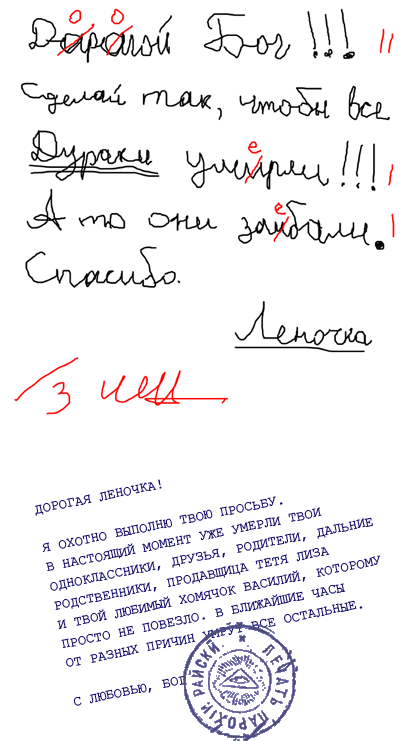 о о
Дарагой Бог !!! ||
Сделай так, чтобы все
е
Дураки умирли!!! |
е
А то они заибали. |
Спасибо.
Леночка
3
ДОРОГАЯ ЛЕНОЧКА!
Я ОХОТНО ВЫПОЛНЮ ТВОЮ ПРОСЬБУ.
В НАСТОЯЩИЙ МОМЕНТ УЖЕ УМЕРЛИ ТВОИ
ОДНОКЛАССНИКИ, ДРУЗЬЯ, РОДИТЕЛИ, ДАЛЬНИЕ
РОДСТВЕННИКИ, ПРОДАВЩИЦА ТЕТЯ ЛИЗА
И ТВОЙ ЛЮБИМЫЙ ХОМЯЧОК ВАСИЛИЙ, КОТОРОМУ
ПРОСТО НЕ ПОВЕЗЛО. В БЛИЖАЙШИЕ ЧАСЫ
ОТ РАЗНЫХ ПРИЧИН УМРУТ ВСЕ ОСТАЛЬНЫЕ.
С ЛЮБОВЬЮ, БОГ
ПЕЧАТЬ ПАРОХІИ РАЙСКИ